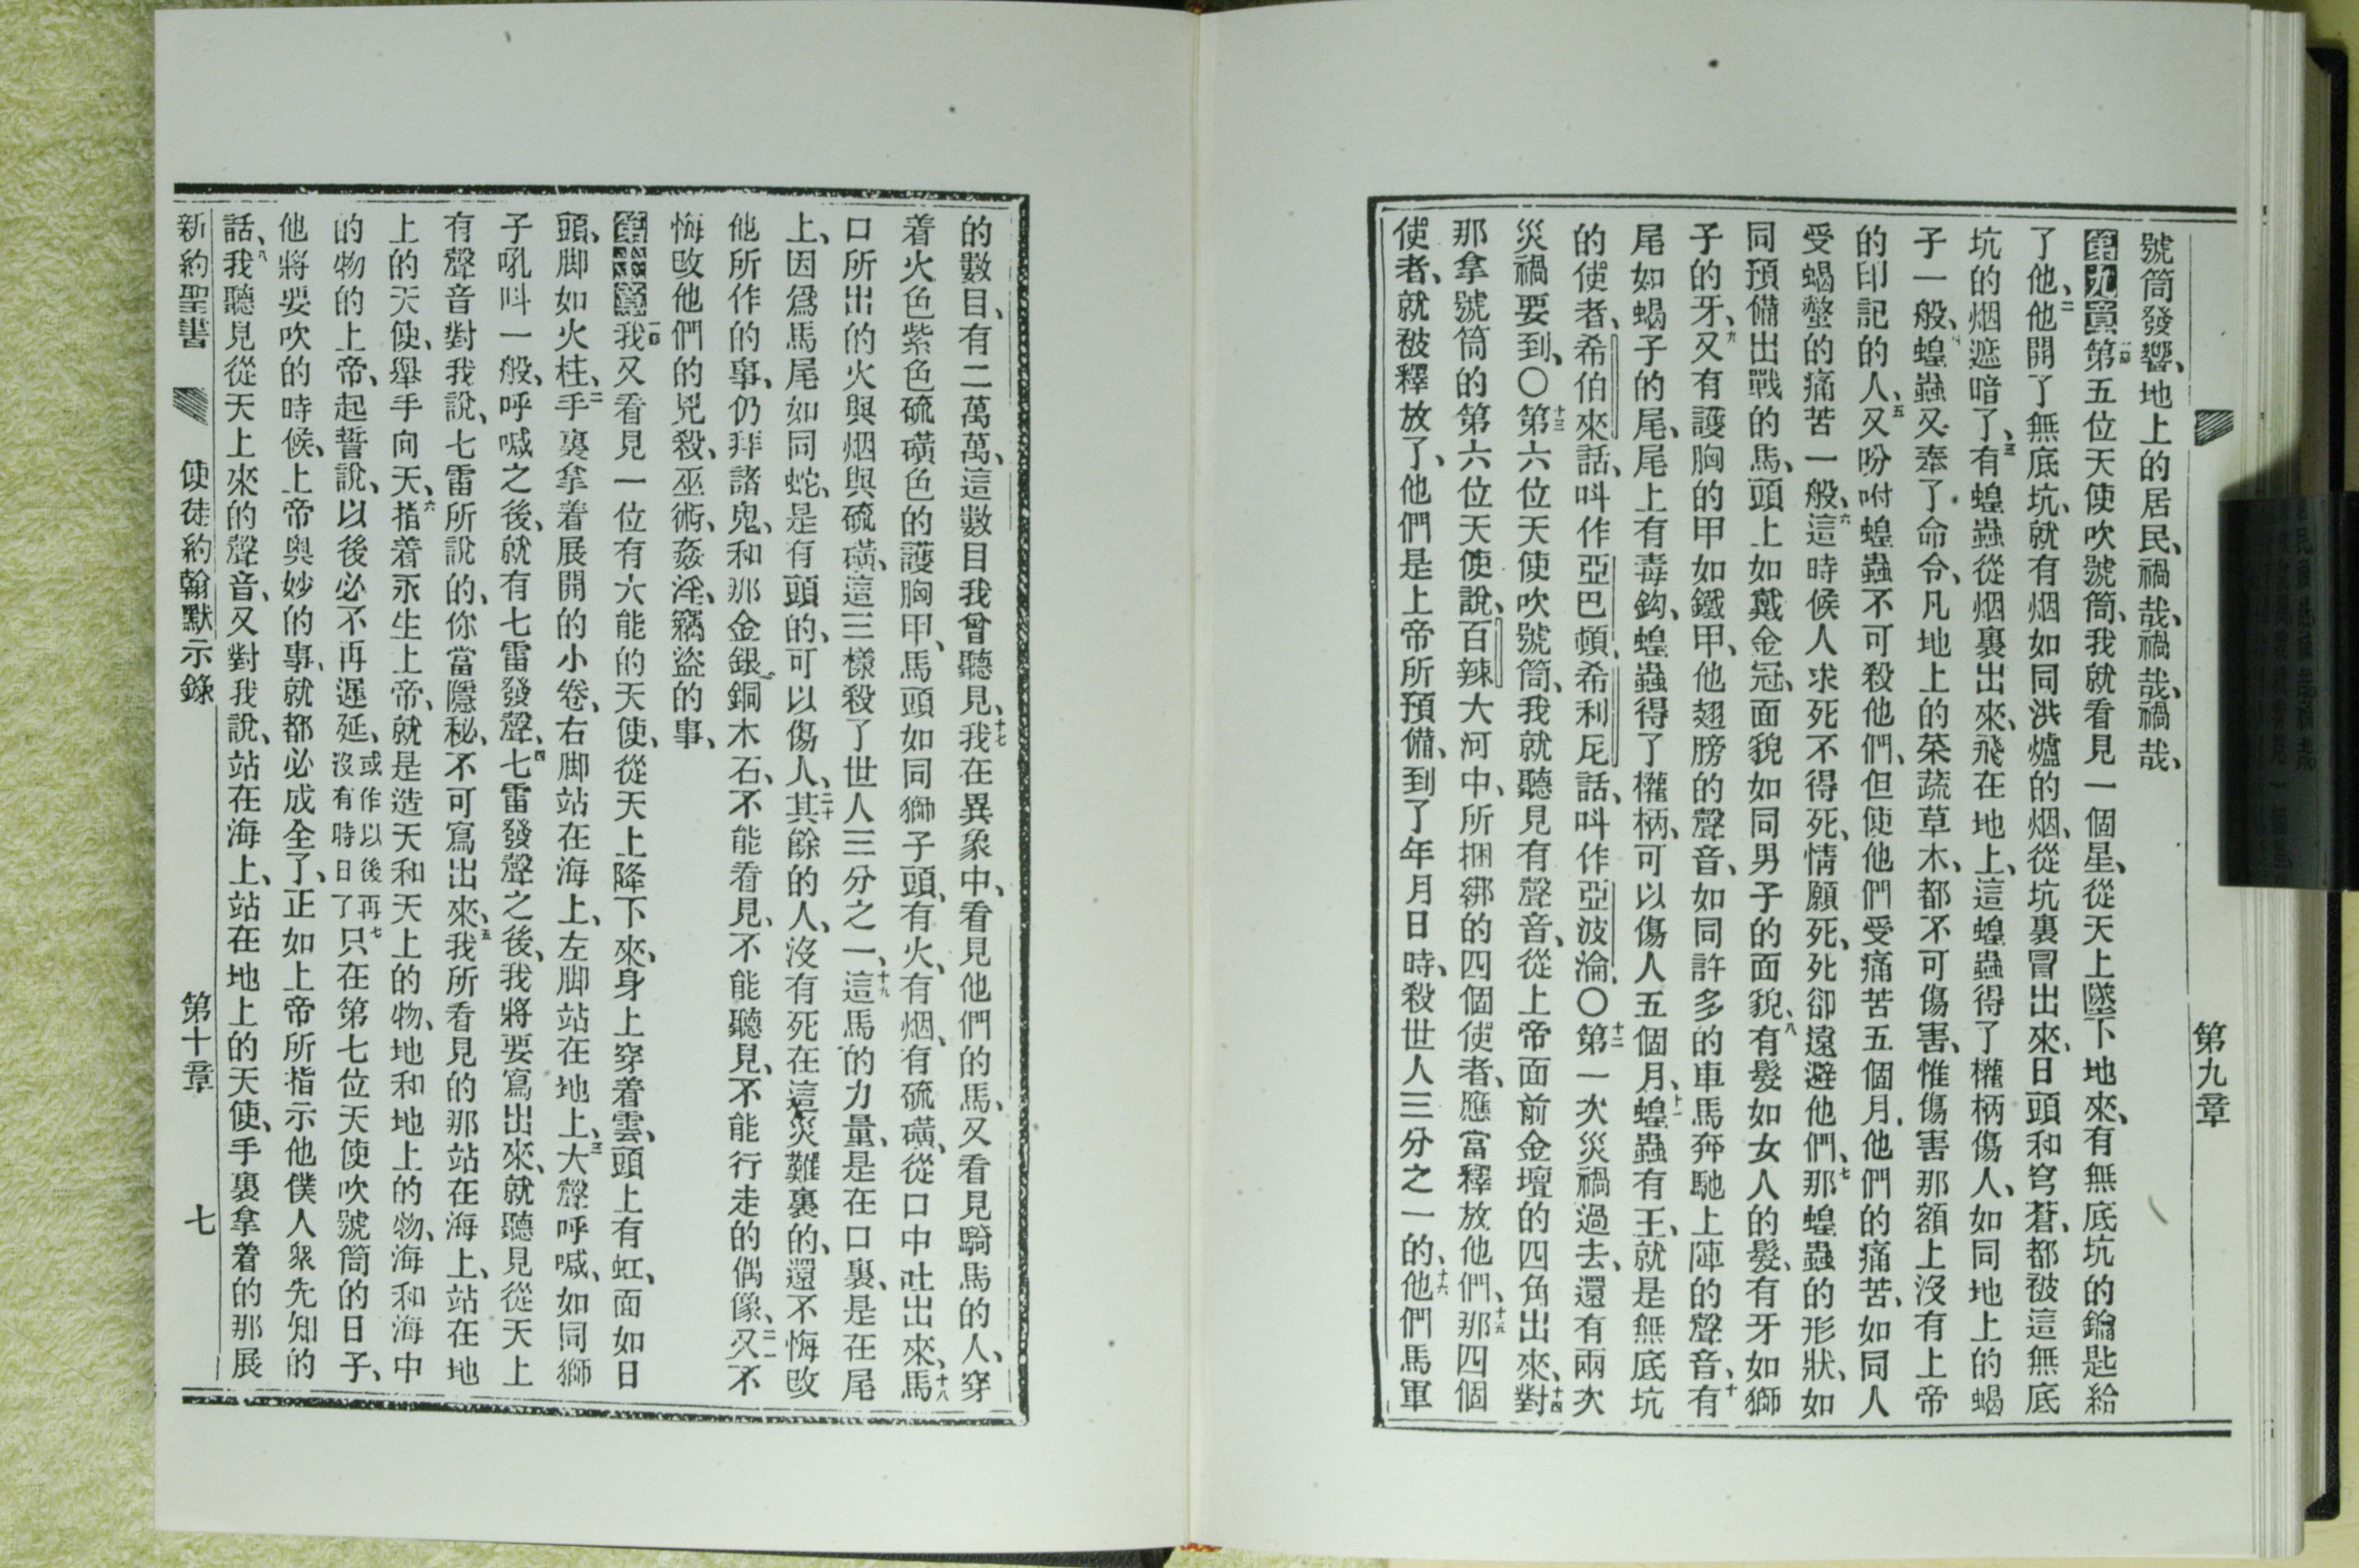 第九章
號筒發響、地上的居民、禍哉、禍哉、禍哉、
第九章一節第五位天使吹號筒、我就看見一個星、從天上墜下地來、有無底坑的鑰匙給
了他、二他開了無底坑、就有烟如同洪爐的烟、從坑裏冒出來、日頭和穹蒼、都被這無底
坑的烟遮暗了、三有蝗蟲從烟裏出來、飛在地上、這蝗蟲得了權柄傷人、如同地上的蝎
子一般、四蝗蟲又奉了命令、凡地上的菜蔬草木、都不可傷害、惟傷害那額上沒有上帝
的印記的人、五又吩咐蝗蟲不可殺他們、但使他們受痛苦五個月、他們的痛苦、如同人
受蝎螫的痛苦一般、六這時候人求死不得死、情願死、死卻遠避他們、七那蝗蟲的形狀、如
同預備出戰的馬、頭上如戴金冠、面貌如同男子的面貌、八有髮如女人的髮、有牙如獅
子的牙、九又有護胸的甲如鐵甲、他翅膀的聲音、如同許多的車馬奔馳上陣的聲音、十有
尾如蝎子的尾、尾上有毒鈎、蝗蟲得了權柄、可以傷人五個月、十一蝗蟲有王、就是無底坑
的使者、希伯來話、叫作亞巴頓、希利尼話、叫作亞波淪、〇十二第一次災禍過去、還有兩次
災禍要到、〇十三第六位天使吹號筒、我就聽見有聲音、從上帝面前金壇的四角出來、十四對
那拿號筒的第六位天使說、百辣大河中、所捆綁的四個使者、應當釋放他們、十五那四個
使者、就被釋放了、他們是上帝所預備、到了年月日時、殺世人三分之一的、十六他們馬軍
的數目、有二萬萬、這數目我曾聽見、十七我在異象中、看見他們的馬、又看見騎馬的人、穿
着火色紫色硫磺色的護胸甲、馬頭如同獅子頭、有火、有烟、有硫磺、從口中吐出來、十八馬
口所出的火與烟與硫磺、這三樣殺了世人三分之一、十九這馬的力量、是在口裏、是在尾
上、因爲馬尾如同蛇、是有頭的、可以傷人、二十其餘的人、沒有死在這災難裏的、還不悔改
他所作的事、仍拜諸鬼、和那金銀銅木石、不能看見、不能聽見、不能行走的偶像、二一又不
悔改他們的兇殺、巫術、姦淫、竊盜的事、
第十章一節我又看見一位有大能的天使、從天上降下來、身上穿着雲、頭上有虹、面如日
頭、脚如火柱、二手裏拿着展開的小卷、右脚站在海上、左脚站在地上、三大聲呼喊、如同獅
子吼叫一般、呼喊之後、就有七雷發聲、四七雷發聲之後、我將要寫出來、就聽見從天上
有聲音對我說、七雷所說的、你當隱秘、不可寫出來、五我所看見的那站在海上、站在地
上的天使、舉手向天、六指着永生上帝、就是造天和天上的物、地和地上的物、海和海中
的物的上帝、起誓說、以後必不再遲延、或作以後再沒有時日了七只在第七位天使吹號筒的日子、
他將要吹的時候、上帝奧妙的事、就都必成全了、正如上帝所指示他僕人衆先知的
話、八我聽見從天上來的聲音、又對我說、站在海上、站在地上的天使、手裏拿着的那展
新約聖書 使徒約翰默示錄 第十章 七